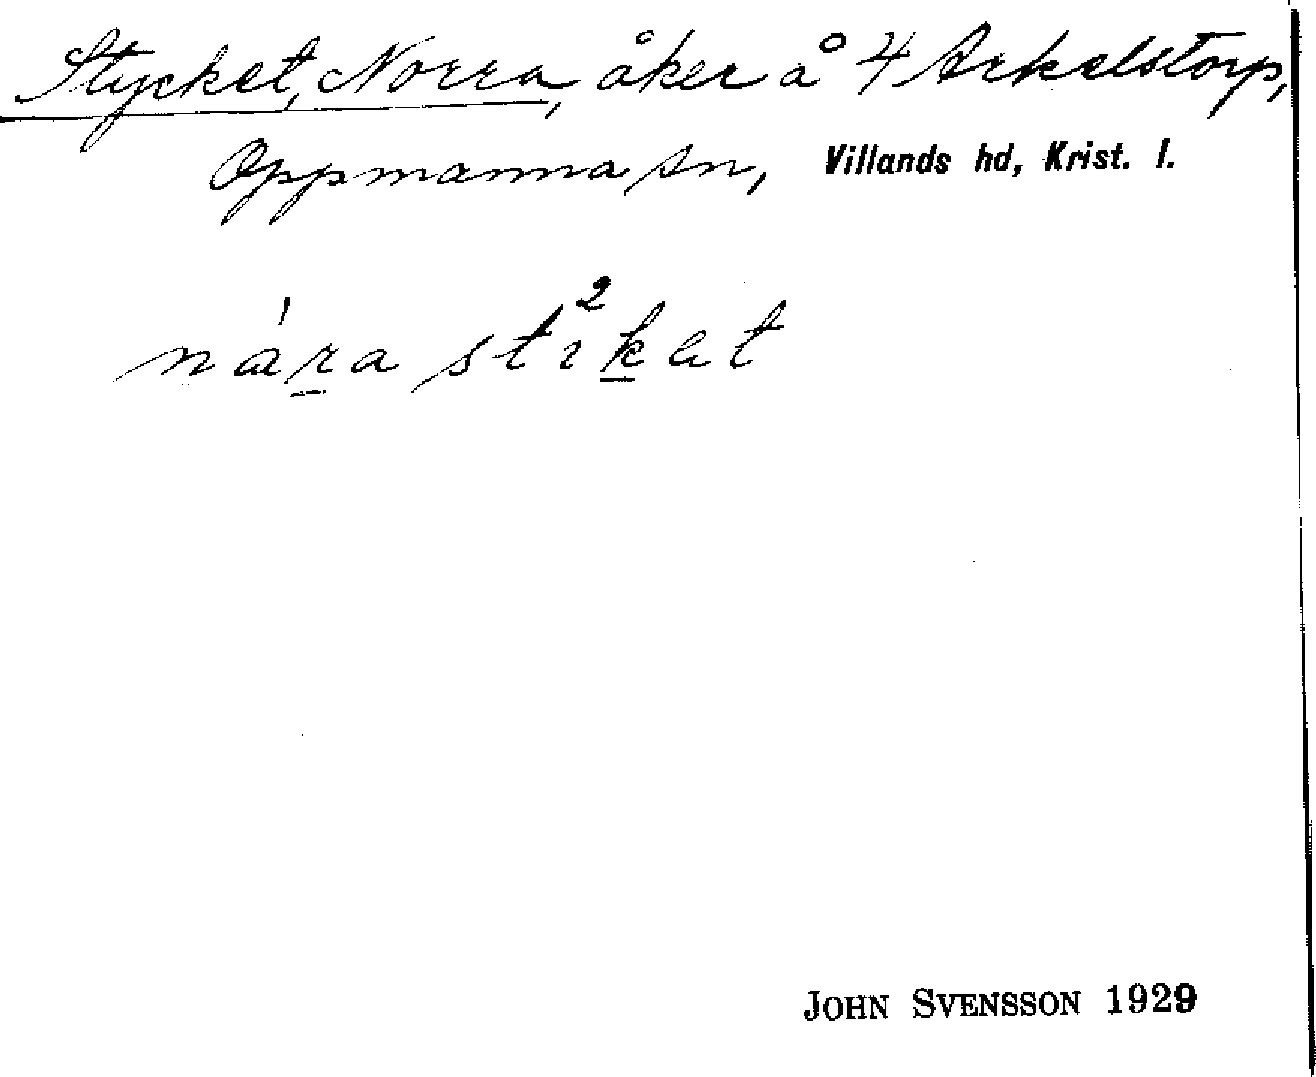 Stycket, Norra, åker å 4 Arkelstorp,
Oppmanna sn, Villands hd, Krist. l.
nára sti²kat
JOHN SVENSSON 1929